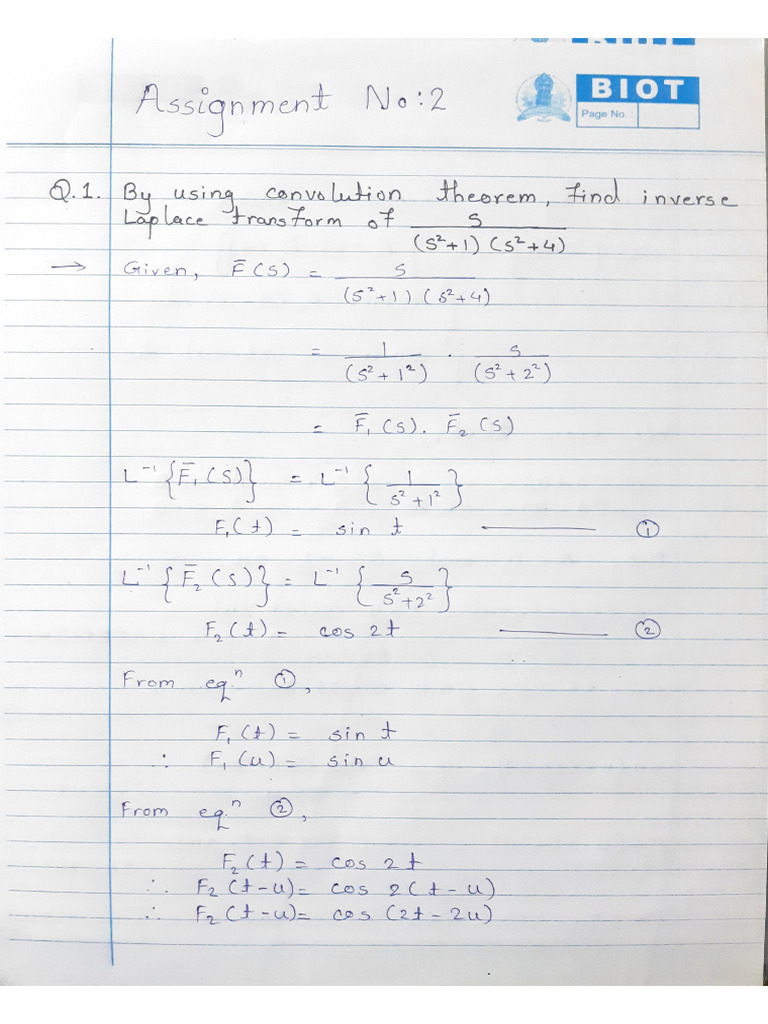 Assignment No:2
BIOT
Page No. :
Q.1. By using convolution theorem, find inverse
Laplace transform of s / (s²+1) (s²+4)
→ Given, F̄(s) = s / (s²+1) (s²+4)
= 1 / (s²+1²) . s / (s²+2²)
= F̄₁(s). F̄₂(s)
L⁻¹{F̄₁(s)} = L⁻¹{1 / s²+1²}
F₁(t) = sin t —— ①
L⁻¹{F̄₂(s)} = L⁻¹{s / s²+2²}
F₂(t) = cos 2t —— ②
From eqⁿ ①,
F₁(t) = sin t
∴ F₁(u) = sin u
From eqⁿ ②,
F₂(t) = cos 2t
∴ F₂(t-u) = cos 2(t-u)
∴ F₂(t-u) = cos (2t-2u)